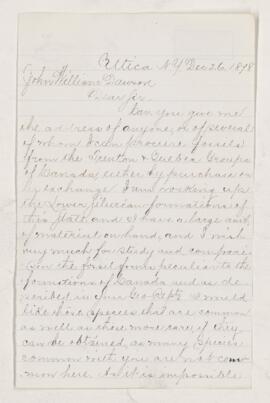 Utica N.Y Dec 26 1878
John William Dawson
Dear Sir
Can you give me
the address of anyone, or of several
of whom I can procure fossils
from the Trenton & Quebec Groups
of Canada, either by purchase or
by exchange. I am working up
the Lower Silurian formations of
this State and I have a large amt
of material on hand, and I wish
very much for study and compari-
son the fossil forms peculiar to the
formations of Canada and as de-
scribed in your Geo Repts. I would
like those species that are common
as well as those more rare, if they
can be obtained, as many species
common with you are not com-
mon here. As it is impossible